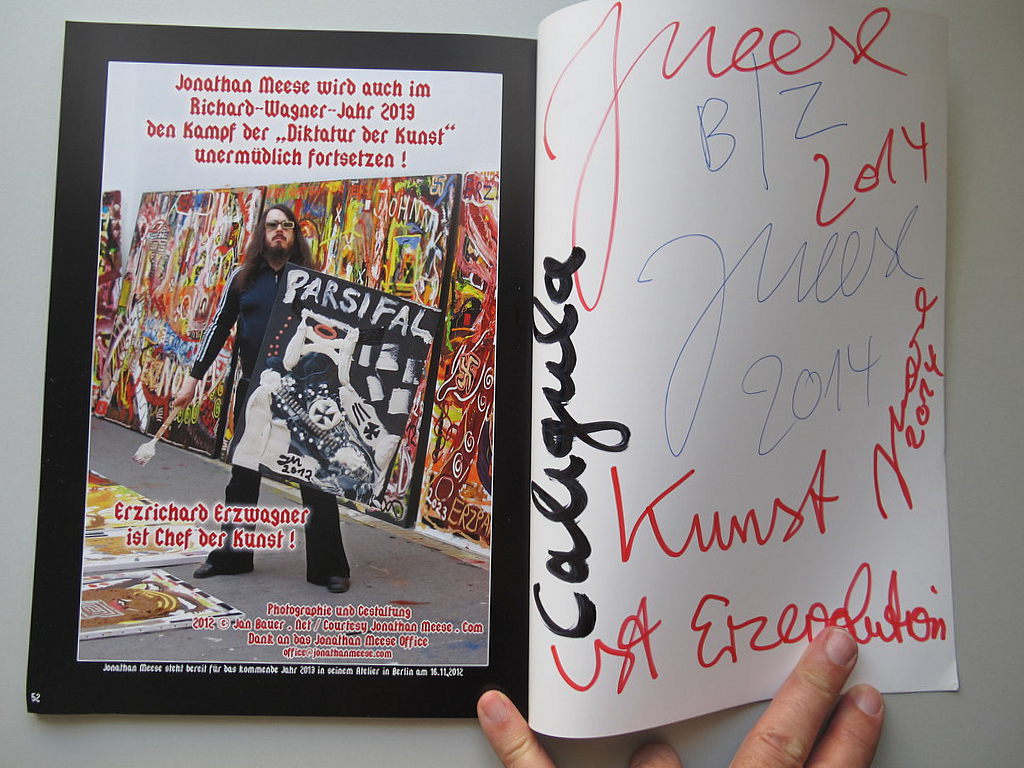 Jonathan Meese wird auch im
Richard-Wagner-Jahr 2013
den Kampf der „Diktatur der Kunst“
unermüdlich fortsetzen !
PARSIFAL
JM
2012
ERZPA
Erzrichard Erzwagner
ist Chef der Kunst !
Photographie und Gestaltung
2012 © Jan Bauer . Net / Courtesy Jonathan Meese . Com
Dank an das Jonathan Meese Office
office@jonathanmeese.com
Jonathan Meese steht bereit für das kommende Jahr 2013 in seinem Atelier in Berlin am 16.11.2012
52
JMeese
B/Z
2014
JMeese
2014
Meese
2014
Caligula
Kunst
ist Erzrevolution